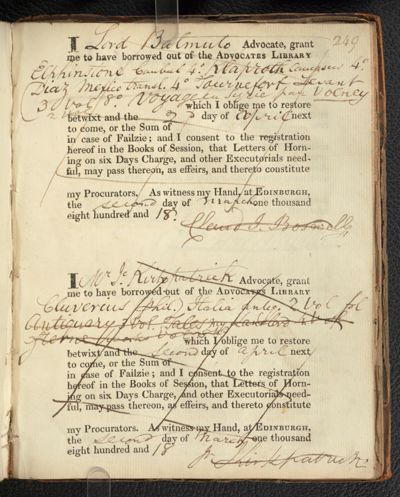 249
I Lord Balmuto Advocate, grant
me to have borrowed out of the ADVOCATES LIBRARY
Elphinstone Caubul 4º Klaproth 4º
Diaz Mexico Transl. 4º Tournefort Levant
3 Vol 8º Voyage en Syrie par Volney
2 which I oblige me to restore
betwixt and the 2d day of April next
to come, or the Sum of
in case of Failzie; and I consent to the registration
hereof in the Books of Session, that Letters of Horn-
ing on six Days Charge, and other Executorials need-
ful, may pass thereon, as effeirs, and thereto constitute
my Procurators. As witness my Hand, at EDINBURGH,
the second day of March one thousand
eight hundred and 18
Claud I. Boswell
I Mr Jo. Kirkpatrick Advocate, grant
me to have borrowed out of the ADVOCATES LIBRARY
Cluverius (Phil.) Italia antiq. 2 Vol fol
Antiquary 3 Vol. Tales my Landlord
which I oblige me to restore
betwixt and the second day of April next
to come, or the Sum of
in case of Failzie; and I consent to the registration
hereof in the Books of Session, that Letters of Horn-
ing on six Days Charge, and other Executorials need-
ful, may pass thereon, as effeirs, and thereto constitute
my Procurators. As witness my Hand, at EDINBURGH,
the second day of March one thousand
eight hundred and 18
Jo. Kirkpatrick